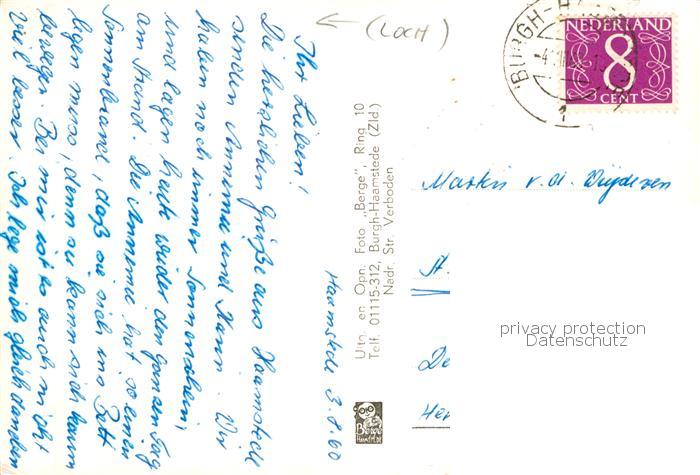 (LOCH)
Haamstede 3.8.60
Ihr Lieben!
Die herzlichen Grüße aus Haamstede
senden Annemie und Hann. Wir
haben noch immer Sonnenschein,
und lagen heute wieder den ganzen Tag
am Strand. Die Annemie hat so einen
Sonnenbrand, daß sie sich ins Bett
legen muss, denn sie kann sich kaum
bewegen. Bei mir ist es auch nicht
viel besser. Ich lege mich gleich daneben
Uitg. en Opn. Foto „Berge", Ring 10
Telf. 01115-312, Burgh-Haamstede (Zld)
Nadr. Str. Verboden
BURGH-H
NEDERLAND
8
CENT
Martin v. d. Wijdeven
St.
De
Her
privacy protection
Datenschutz